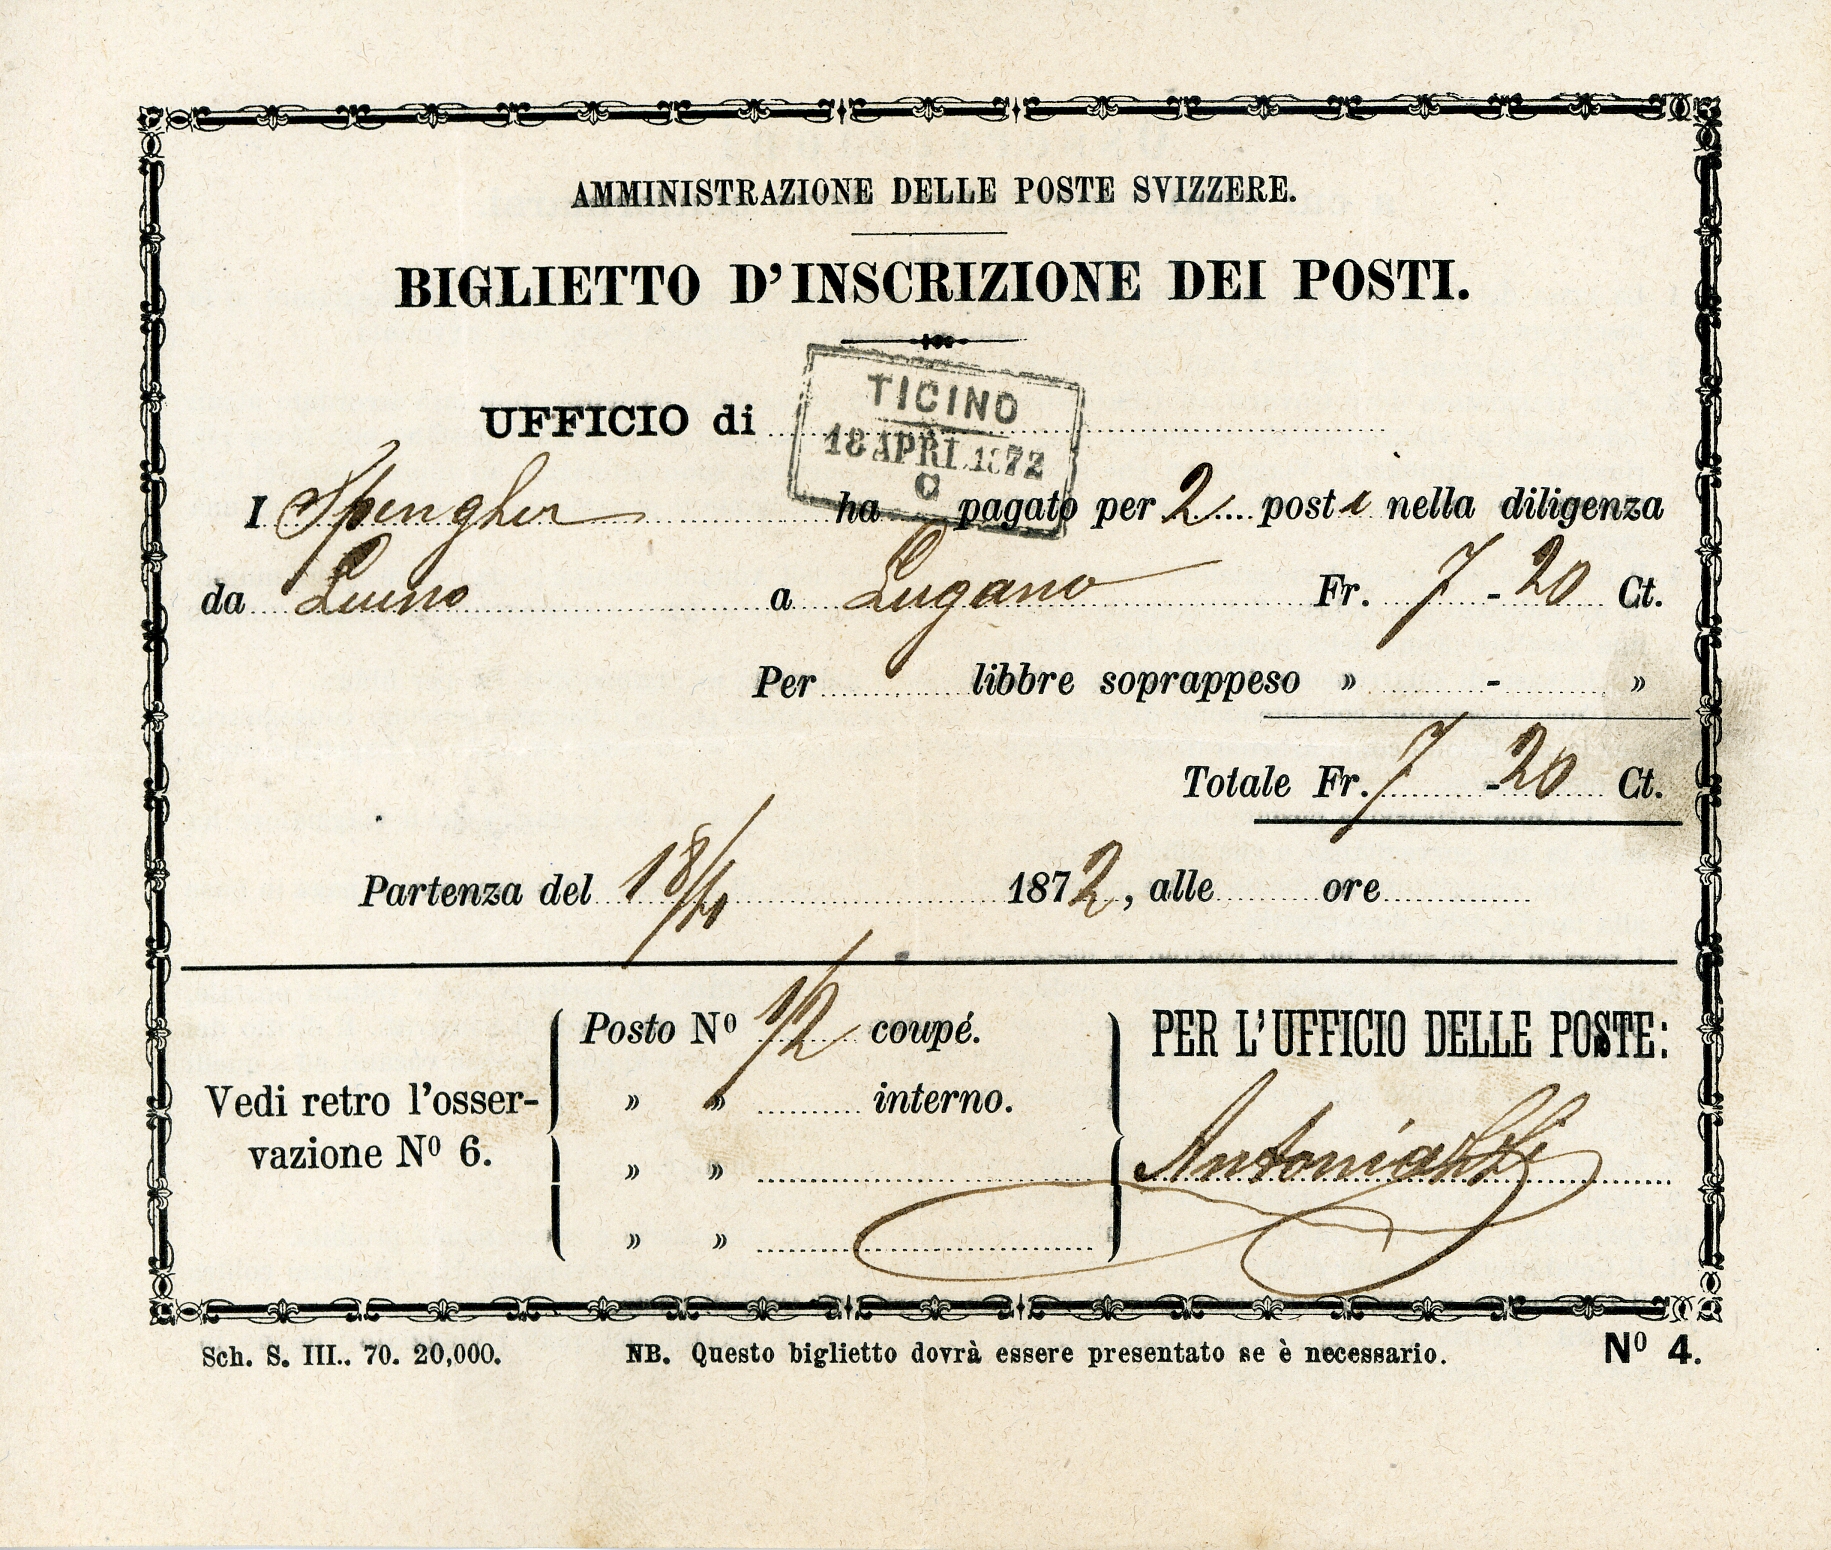 AMMINISTRAZIONE DELLE POSTE SVIZZERE.
BIGLIETTO D'INSCRIZIONE DEI POSTI.
UFFICIO di
TICINO
18 APRI. 1872
I Spengler ha pagato per 2 posti nella diligenza
da Luino a Lugano Fr. 7 - 20 Ct.
Per libbre soprappeso » - »
Totale Fr. 7 - 20 Ct.
Partenza del 18/4 1872, alle ore
Vedi retro l'osser-
vazione Nº 6.
Posto Nº 1/2 coupé.
» » interno.
» »
» »
PER L'UFFICIO DELLE POSTE:
Sch. S. III.. 70. 20,000.
NB. Questo biglietto dovrà essere presentato se è necessario.
Nº 4.